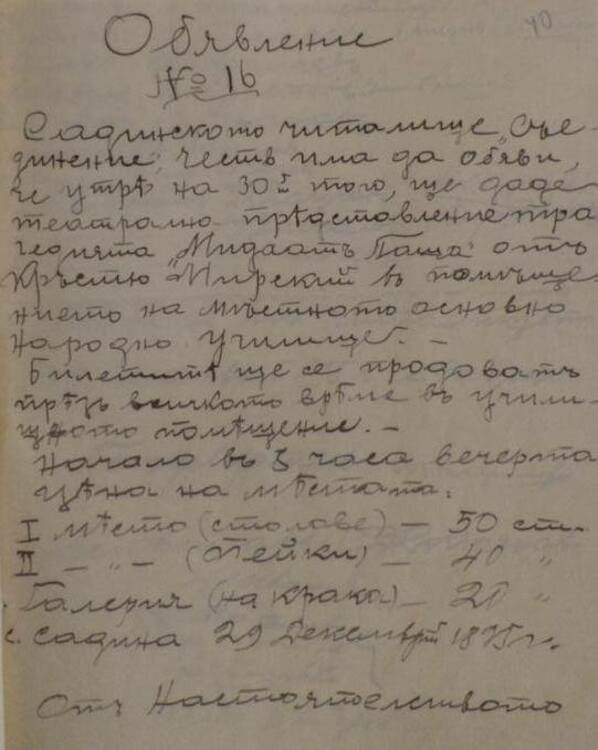 40
Обявление
№ 16
Садинското читалище „Сѫе-
динение", честь има да обяви,
че утрѣ на 30й того, ще даде
театрално прѣдставление тра
гедията „Мидаатъ Паша" отъ
Кръстю Мирский въ помѣще-
нието на мѣстното основно
народно училище. –
Билетитѣ ще се продоватъ
прѣзъ всичкото врѣме въ учили-
щното помѣщение. –
Начало въ часа вечерта
Цѣна на мѣстата:
I мѣсто (столове) – 50 ст.
II – „ – (Пейки) – 40 „
Галерия (на крака) – 20 „
с. Садина 29 Декемврий 1895 г.
Отъ Настоятелството